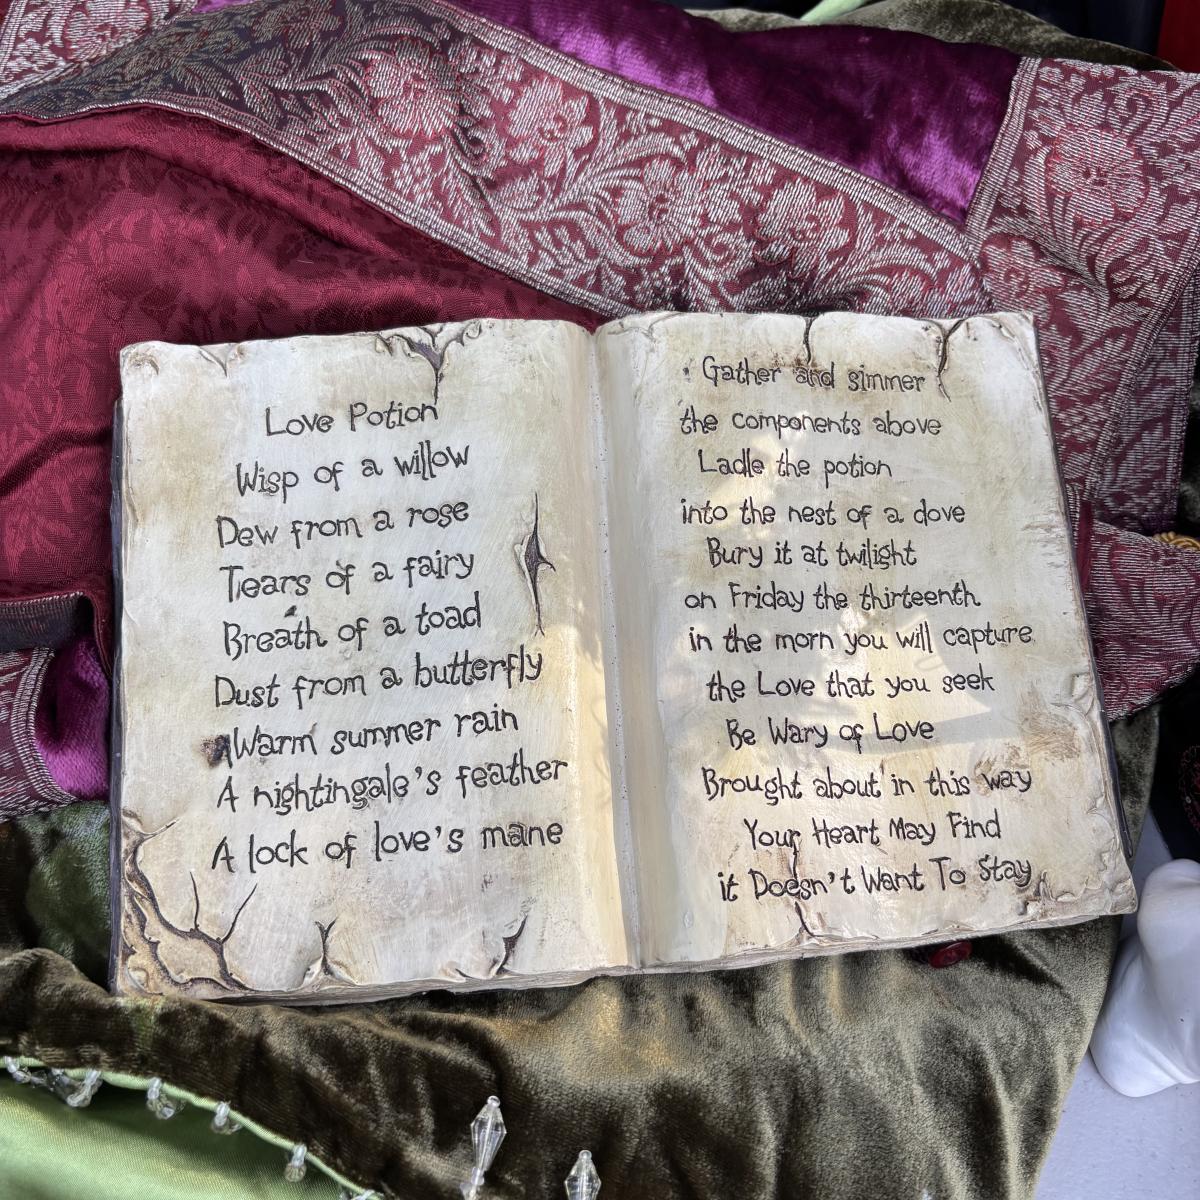 Love Potion
Wisp of a willow
Dew from a rose
Tears of a fairy
Breath of a toad
Dust from a butterfly
Warm summer rain
A nightingale's feather
A lock of love's mane
Gather and simmer
the components above
Ladle the potion
into the nest of a dove
Bury it at twilight
on Friday the thirteenth
in the morn you will capture
the Love that you seek
Be Wary of Love
Brought about in this way
Your Heart May Find
it Doesn't Want To Stay